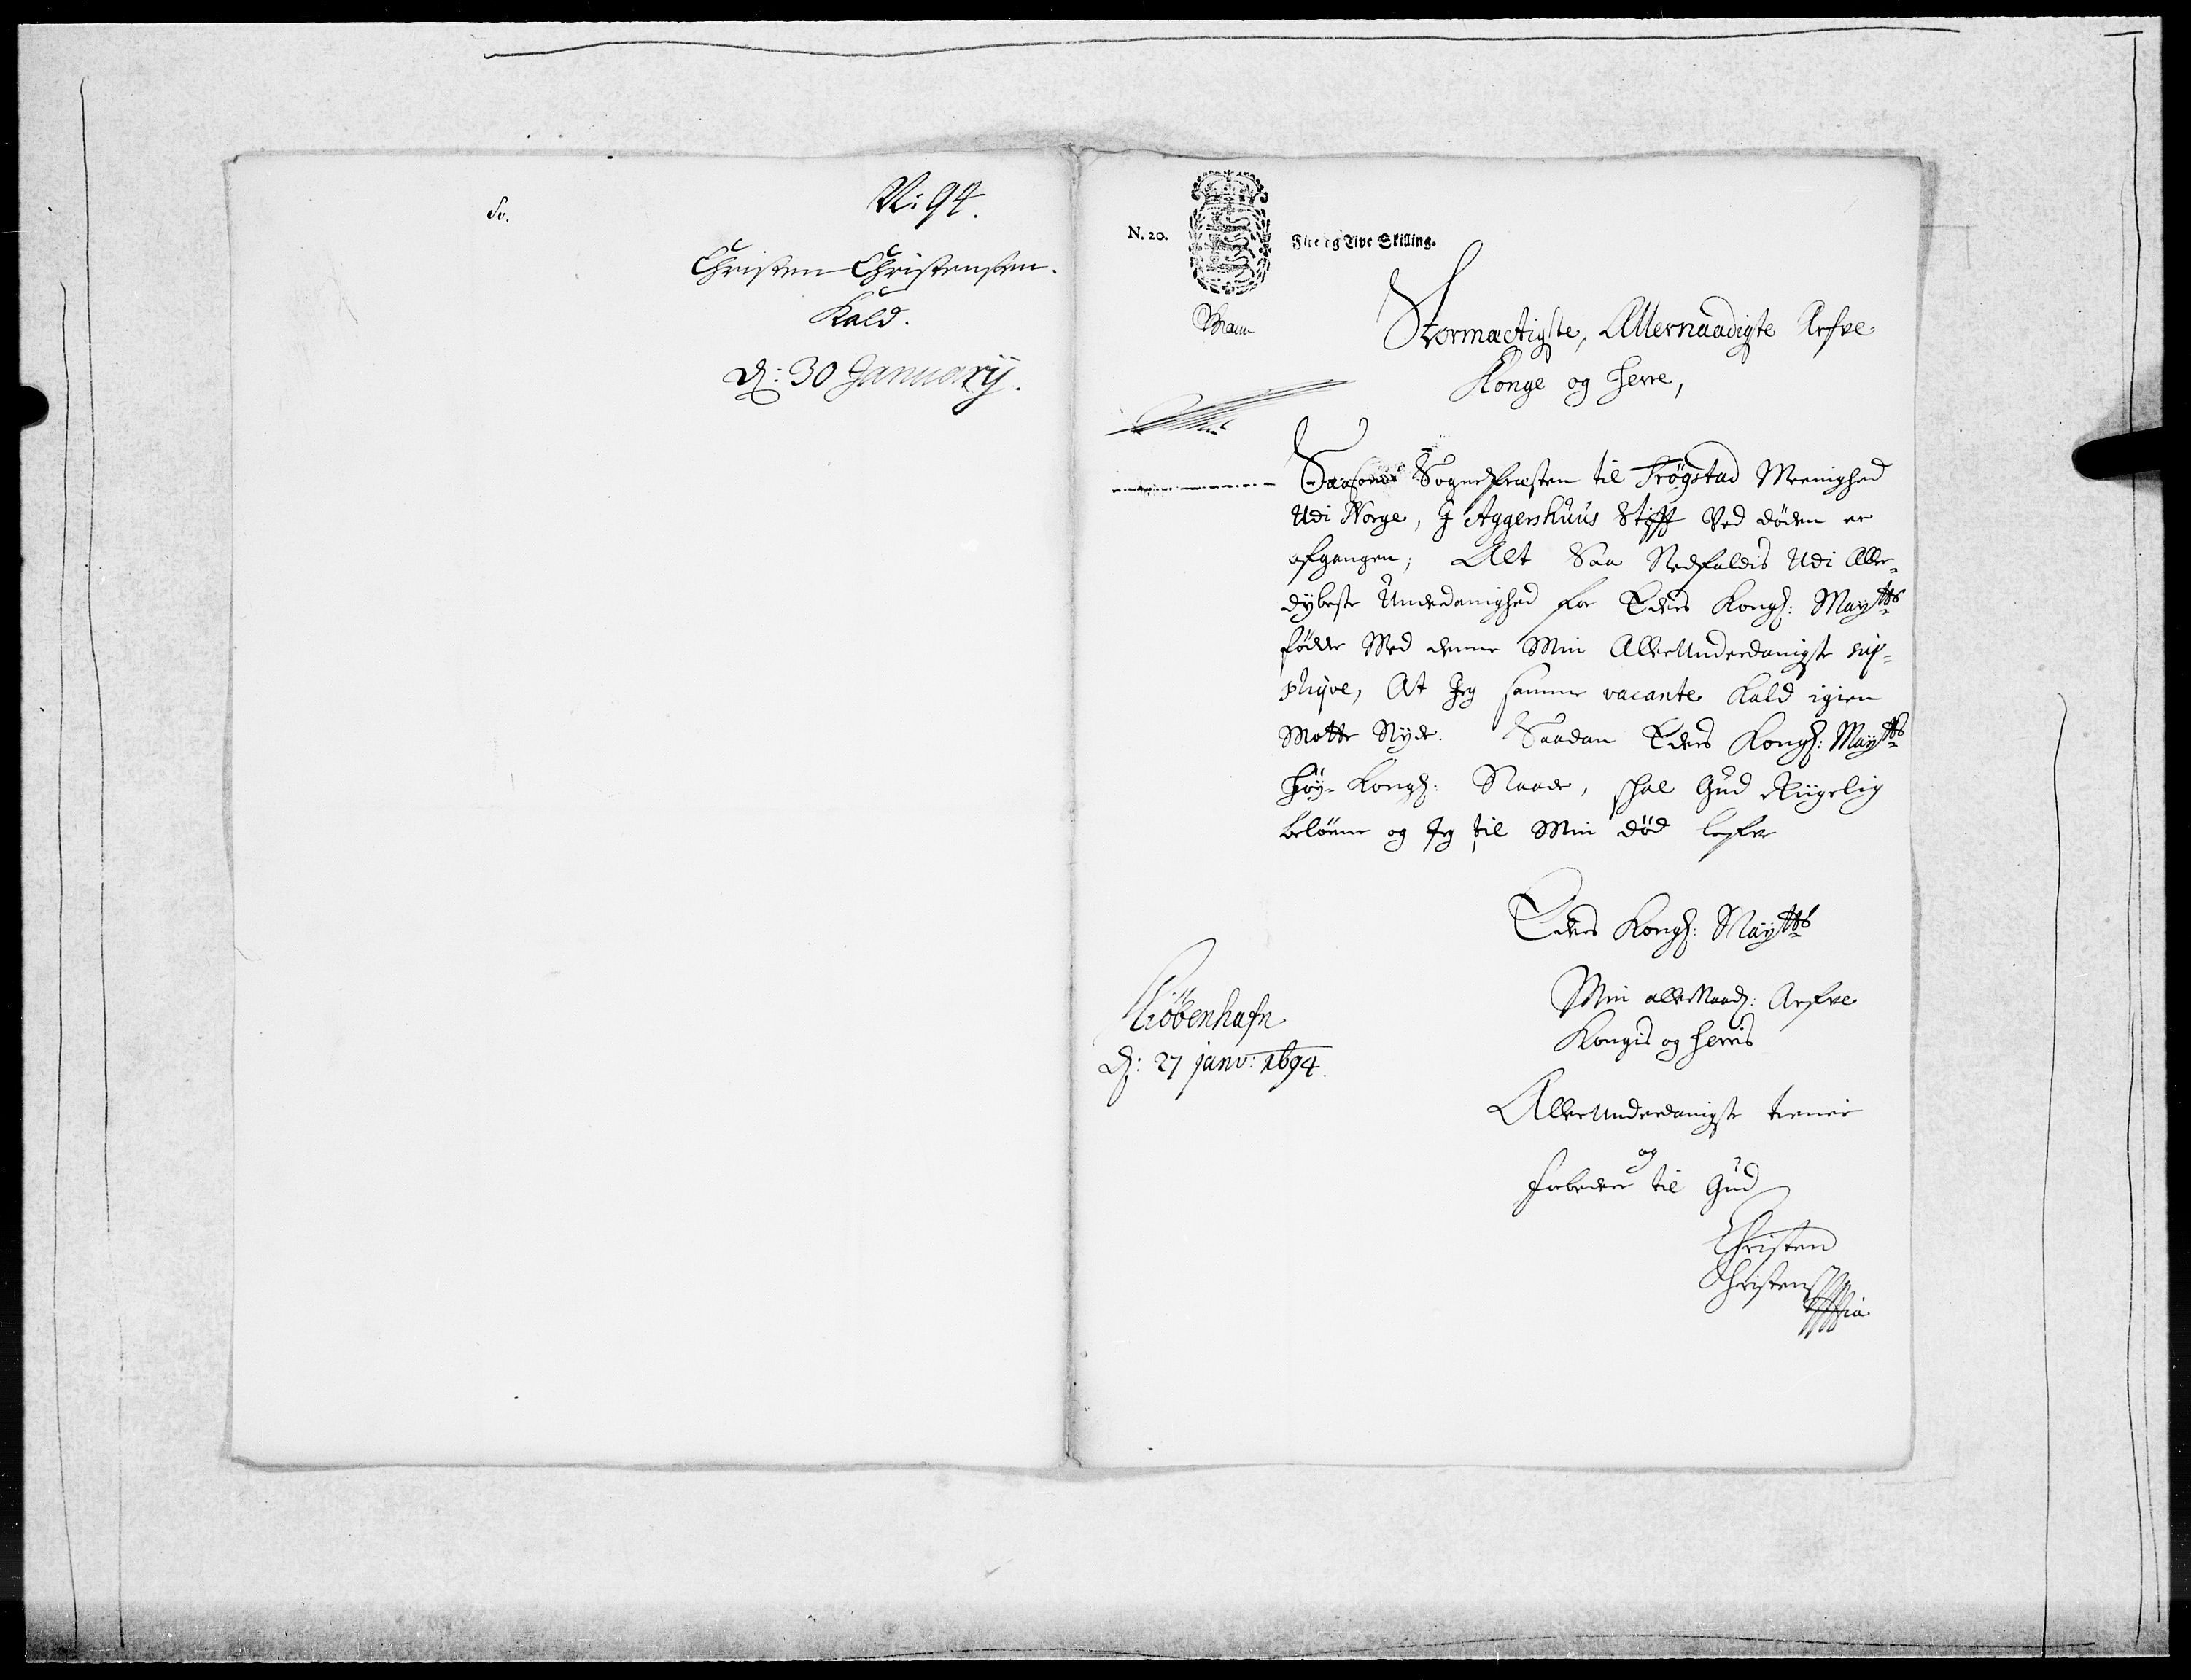 N: 94.
Christen Christensen.
Kald.
d: 30 Januarij.
N. 20.
Fire og Tive Skilling.
Stormæctigste, Allernaadigste Arfve
Konge og Herre,
Saasom Sognepresten til Trögstad Meenighed
Udi Norge, J Aggershuus Stifft Ved döden er
afgangen; Alt Saa Nedfaldis Udi Aller-
dybeste Underdanighed for Eders Kongl: Maytts
födder Med denne Min AllerUnderdanigste sup-
plique, At Jeg samme vacante Kald igien
Motte Nyde. Saadan Eders Kongl: Maytts
höy- Kongl: Naade, skal Gud Riigelig
belönne og Jeg til Min död lefver
Eders Kongl: Maytts
Min allerNaad: Arfve
Kongis og Herris
AllerUnderdanigste tienner
og
forbeder til Gud
Christen
Christens
Kiöbenhafn
d: 27 janv: 1694.